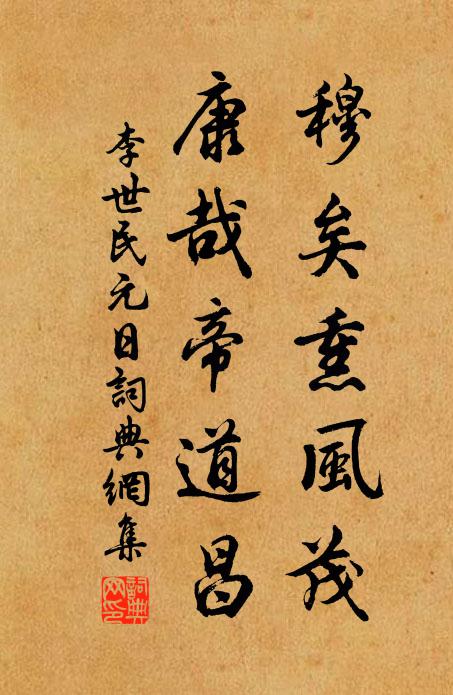 穆矣熏風茂
康哉帝道昌
李世民元日詞典網集
詞典網印